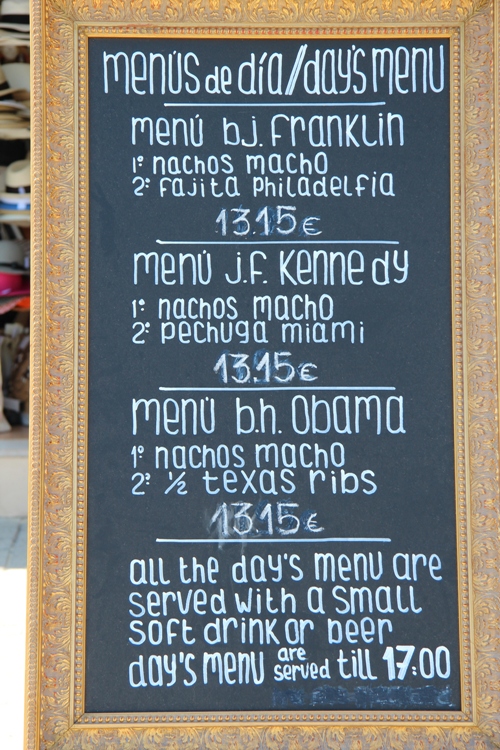 menús de día//day's menu
menú b.j. Franklin
1º nachos macho
2º Fajita Philadelfia
13.15€
menú J.F. Kennedy
1º nachos macho
2º pechuga miami
13.15€
menú b.h. Obama
1º nachos macho
2º ½ texas ribs
13.15€
all the day's menu are
served with a small
soft drink or beer
day's menu are served till 17:00